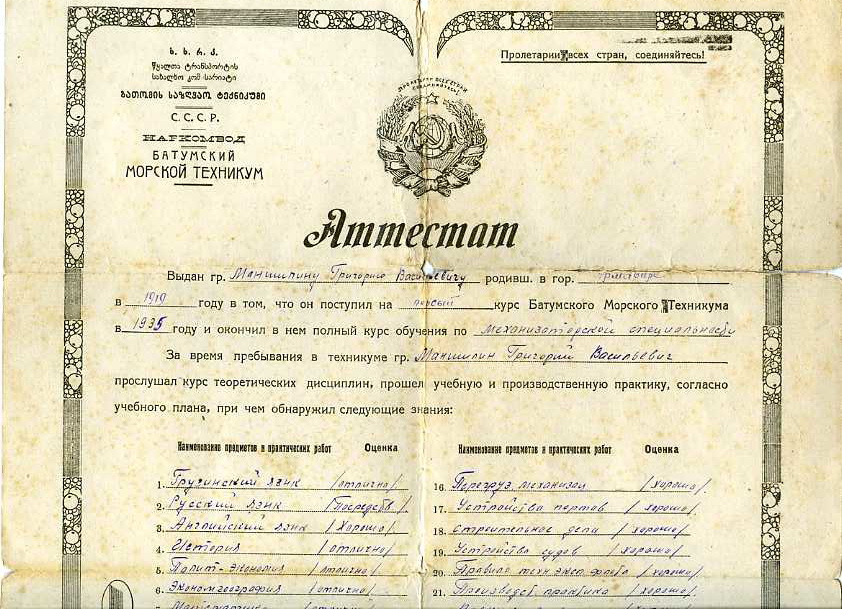 ს. ს. რ. კ.
წყალთა ტრანსპორტის
სახალხო კომ-სარიატი
ბათომის საზღვაო ტექნიკუმი
С. С. С. Р.
НАРКОМВОД
БАТУМСКИЙ
МОРСКОЙ ТЕХНИКУМ
Пролетарии всех стран, соединяйтесь!
ПРОЛЕТАРИИ ВСЕХ СТРАН
СОЕДИНЯЙТЕСЬ!
Аттестат
Выдан гр. Маншилину Григорию Васильевичу родивш. в гор. Армавире
в 1919 году в том, что он поступил на первый курс Батумского Морского Техникума
в 1935 году и окончил в нем полный курс обучения по механизаторской специальности
За время пребывания в техникуме гр. Маншилин Григорий Васильевич
прослушал курс теоретических дисциплин, прошел учебную и производственную практику, согласно
учебного плана, при чем обнаружил следующие знания:
Наименование предметов и практических работ Оценка
1. Грузинский язык /отлично/
2. Русский язык /Посредств/.
3. Английский язык /Хорошо/.
4. История /отлично/
5. Полит-Экономия /отлично/
6. Экономгеография /отлично/
Наименование предметов и практических работ Оценка
16. Перегруз. механизм /хорошо/.
17. Устройства портов /хорошо/.
18. Строительное дело /хорошо/.
19. Устройства судов /хорошо/.
20. Правила техн. эксп. флота /хорошо/.
21. Производств практика /хорошо/.